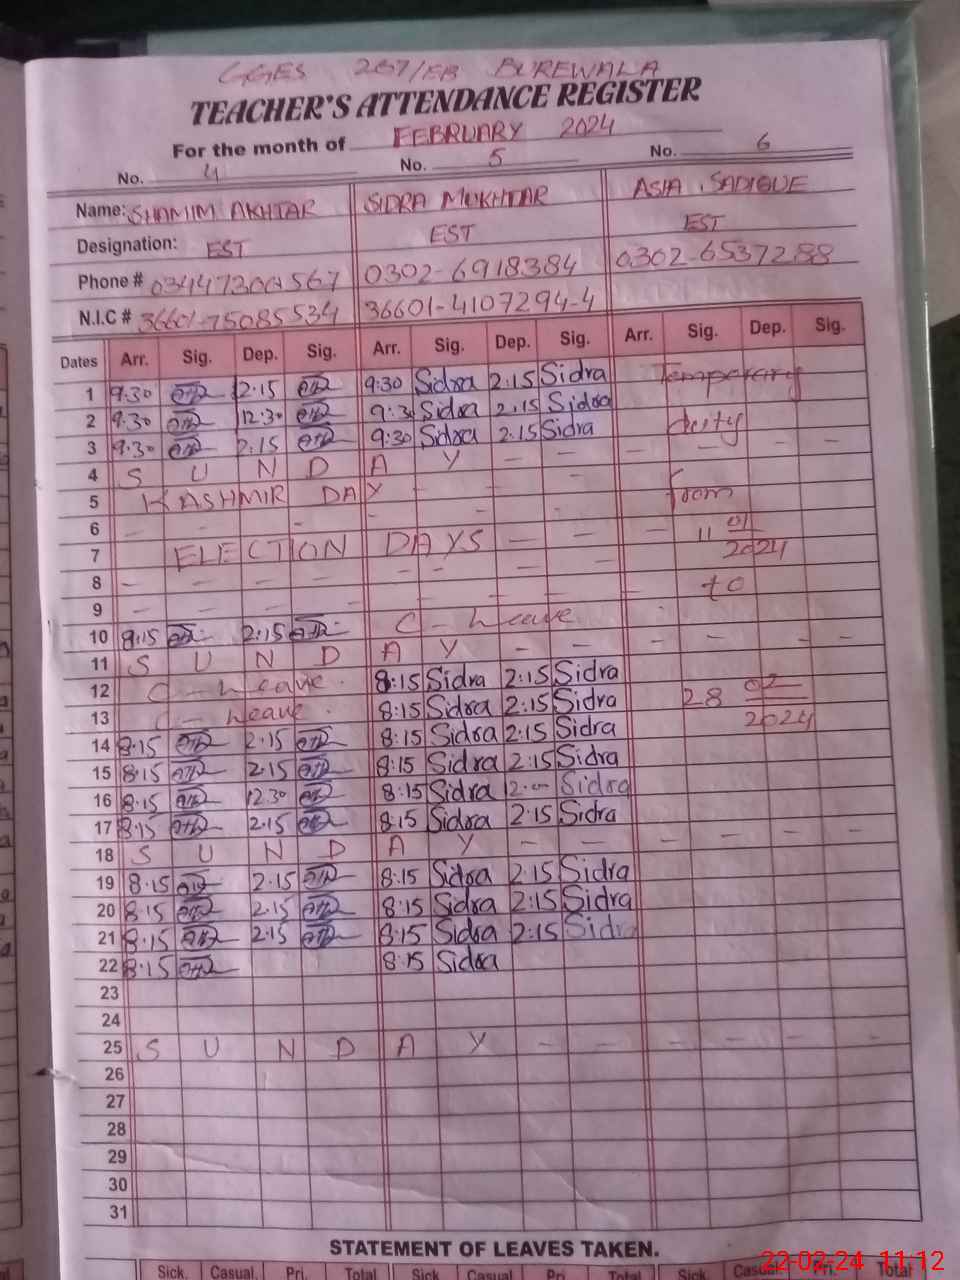 GGES 287/EB BUREWALA
TEACHER'S ATTENDANCE REGISTER
For the month of FEBRUARY 2024
No. 4 No. 5 No. 6
Name: SHAMIM AKHTAR SIDRA MUKHTAR ASIA SADIQUE
Designation: EST EST EST
Phone # 0302-6918384 0302-6537288
N.I.C # 36601-75085534 36601-4107294-4
Dates Arr. Sig. Dep. Sig. Arr. Sig. Dep. Sig. Arr. Sig. Dep. Sig.
1 9.30 2.15 9:30 Sidra 2:15 Sidra Temperary
2 9.30 12:30 9:30 Sidra 2.15 Sidra duty
3 9.30 2.15 9:30 Sidra 2.15 Sidra - - - -
4 S U N D A Y - - -
5 KASHMIR DAY - - - from
6 - - - - - - - - 11 01
7 ELECTION DAYS - - 2024
8 - - - - - - - - to
9 - - - - - - - - -
10 8.15 2:15 C-Leave
11 S U N D A Y - - - - - -
12 C-Leave. 8:15 Sidra 2:15 Sidra 28 02
13 C-Leave. 8:15 Sidra 2:15 Sidra 2024
14 8.15 2.15 8:15 Sidra 2:15 Sidra
15 8.15 2.15 8:15 Sidra 2:15 Sidra
16 8.15 12.30 8:15 Sidra Sidra
17 8.15 2.15 8:15 Sidra 2:15 Sidra
18 S U N D A Y - - - - - -
19 8.15 2.15 8:15 Sidra 2:15 Sidra
20 8.15 2.15 8:15 Sidra 2:15 Sidra
21 8.15 2.15 8:15 Sidra 2:15 Sidra
22 8.15 8:15 Sidra
23
24
25 S U N D A Y - - - - - -
26
27
28
29
30
31
STATEMENT OF LEAVES TAKEN.
Sick. Casual. Pri. Total Sick. Casual. Pri. Total Sick. Casual. Pri. Total
22-02-24 11:12